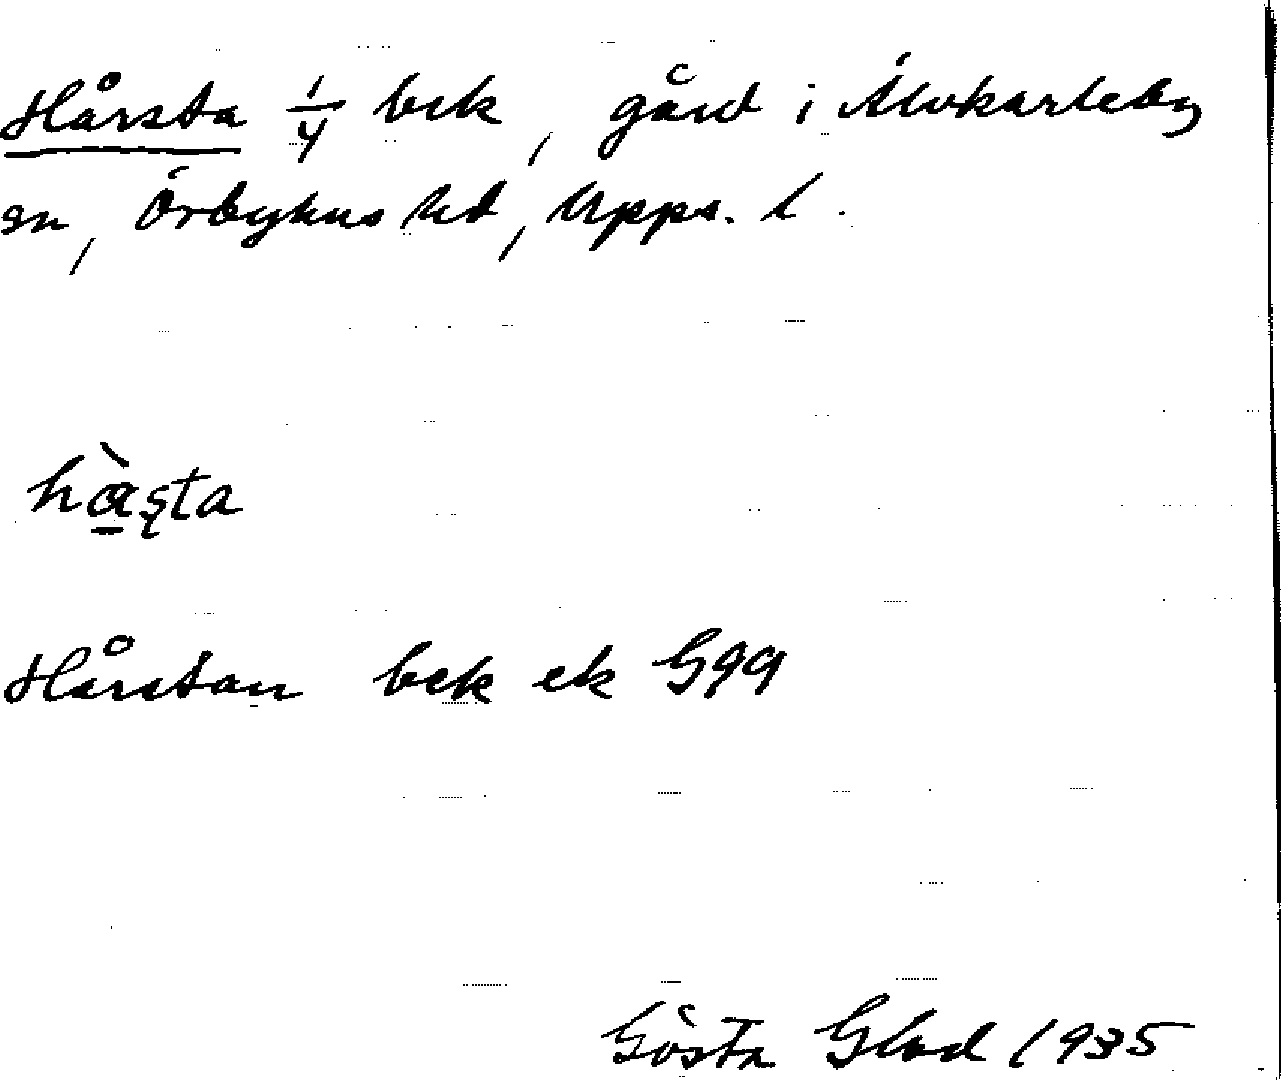 Hårsta 1/4 bek, gård i Älvkarleby
sn, Örbyhus hd, Upps. l.
hàsta
Hårstan bek ek G99
Gösta Glad 1935